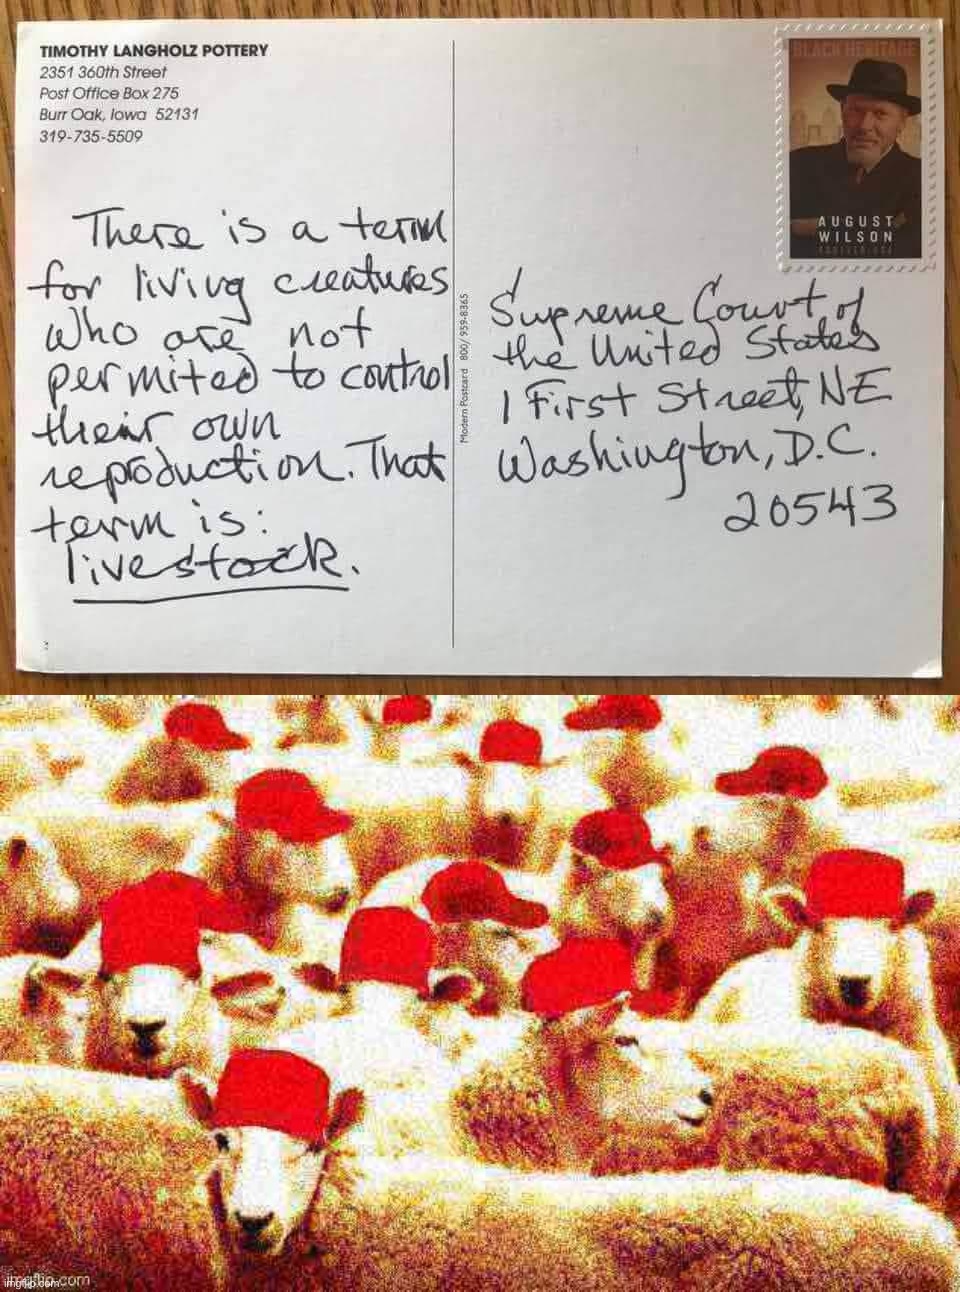 TIMOTHY LANGHOLZ POTTERY
2351 360th Street
Post Office Box 275
Burr Oak, Iowa 52131
319-735-5509
There is a term
for living creatures
who are not
permited to control
their own
reproduction. That
term is:
livestock.
Modern Postcard 800/959-8365
BLACK HERITAGE
AUGUST
WILSON
FOREVER USA
Supreme Court of
the United States
1 First Street, NE
Washington, D.C.
20543
imgflip.com